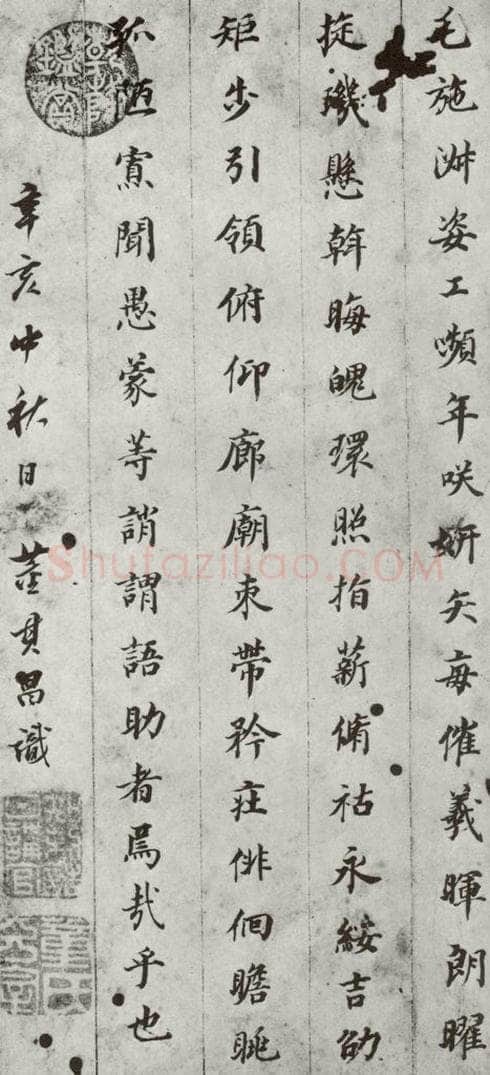 毛施淑姿工嚬年咲妍矢每催羲暉朗曜
旋璣懸斡晦魄環照指薪脩祜永綏吉劭
矩步引領俯仰廊廟束帶矜莊俳佪瞻眺
孤陋寡聞愚蒙等誚謂語助者焉哉乎也
辛亥中秋日 董其昌識
Shufaziliao.COM